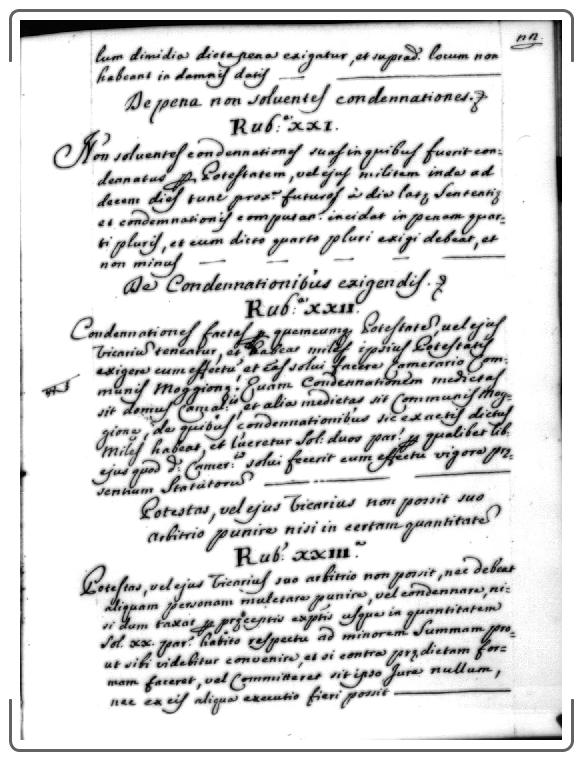 nn.
lum dimidia dicta pena exigatur, et suprad: locum non
habeant in damnis datis
De pena non solventes condennationes.
Rub:ᵃ XXI.
Non solventes condennationes suas in quibus fuerit con-
dennatus ꝑ Potestatem, vel ejus militem inde ad
decem dies tunc prox.ᵉ futuros à die latę sententię
et condemnationis computan: incidat in penam quar-
ti pluris, et cum dicto quarto pluri exigi debeat, et
non minus
De Condennationibus exigendis.
Rub:ᵃ XXII.
Condennationes factas ꝑ quemcunq Potestatē, vel ejus
Vicariū teneatur, et habeat miles ipsius Potestatis
exigere cum effectu et eas solui facere Camerario Com-
munis Moggiong: Quam Condennationem medietas
sit domus Camal: et alia medietas sit Communis Mog-
gione, de quibus condennationibus sic exactis dictus
Miles habeat, et lucretur Sol: duos par: ꝑ qualibet lib:
ejus quod d: Camer: solui fecerit cum effectu vigore prę
sentium Statutorū
Potestas, vel ejus Vicarius non possit suo
arbitrio punire nisi in certam quantitatē
Rub: XXIII.ᵃ
Potestas, vel ejus Vicarius suo arbitrio non possit, nec debeat
aliquam personam muletare punire, vel condennare, ni-
si dum taxat ꝑ pręceptis exptis usque in quantitatem
Sol. XX. par: habito respectu ad minorem Summam pro-
ut sibi videbitur convenire, et si contra prędictam for-
mam faceret, vel Committeret sit ipso Jure nullum,
nec ex eis aliqua executio fieri possit